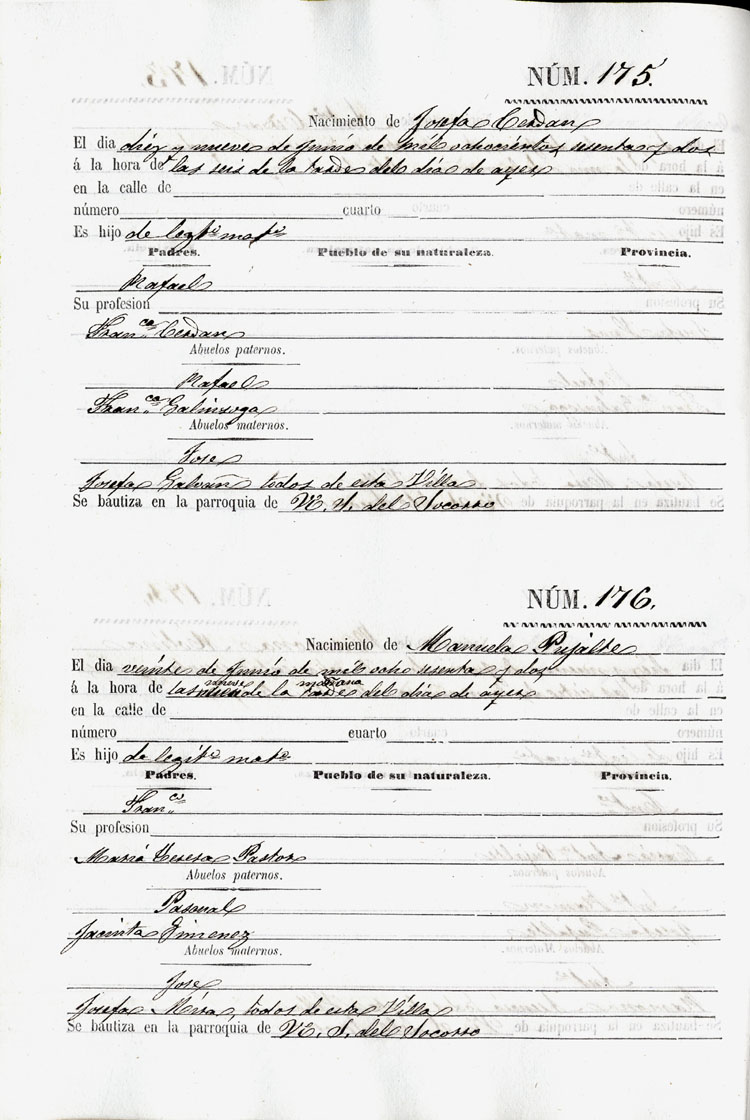 NÚM. 175.
Nacimiento de Josefa Cerdan
El dia diez y nueve de Junio de mil ochocientos sesenta y dos
á la hora de las seis de la tarde del dia de ayer
en la calle de
número cuarto
Es hijo de legmo mato
Padres. Pueblo de su naturaleza. Provincia.
Rafael
Su profesion
Franca Cerdan
Abuelos paternos.
Rafael
Franca Galinsoga
Abuelos maternos.
Jose
Josefa Galvañ todos de esta Villa
Se bautiza en la parroquia de N. S. del Socorro
NÚM. 176.
Nacimiento de Manuela Pujalte
El dia veinte de Junio de mil ocho sesenta y dos
á la hora de las nueve de la mañana tarde del dia de ayer
en la calle de
número cuarto
Es hijo de legit mato
Padres. Pueblo de su naturaleza. Provincia.
Franco
Su profesion
Maria Teresa Pastor
Abuelos paternos.
Pascual
Jacinta Gimenez
Abuelos maternos.
Jose
Josefa Mira, todos de esta Villa
Se bautiza en la parroquia de N. S. del Socorro